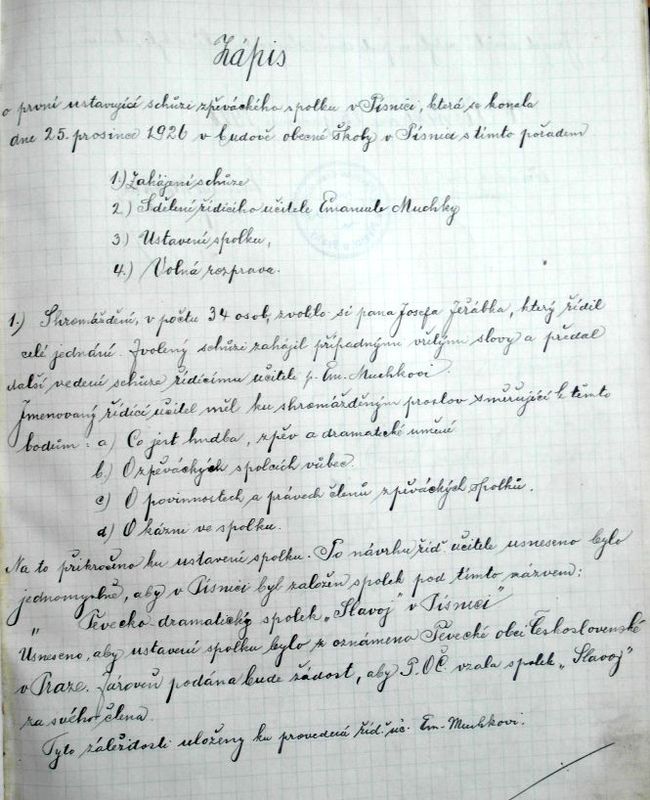 Zápis
o první ustavující schůzi zpěváckého spolku v Písnici, která se konala
dne 25. prosince 1926 v budově obecné školy v Písnici s tímto pořadem
1.) Zahájení schůze
2.) Sdělení řídícího učitele Emanuele Muchky
3.) Ustavení spolku,
4.) Volná rozprava.
1.) Shromáždění, v počtu 34 osob, zvolilo si pana Josefa Jeřábka, který řídil
celé jednání. Zvolený schůzi zahájil případnými vřelými slovy a předal
další vedení schůze řídícímu učiteli p. Em. Muchkovi.
Jmenovaný řídící učitel měl ku shromážděným proslov směřující k těmto
bodům: a) Co jest hudba, zpěv a dramatické umění
b.) O zpěváckých spolcích vůbec.
c) O povinnostech a právech členů zpěváckých spolků.
d) O kázni ve spolku.
Na to přikročeno ku ustavení spolku. Po návrhu říd. učitele usneseno bylo
jednomyslně, aby v Písnici byl založen spolek pod tímto názvem:
" Pěvecko dramatický spolek „Slavoj" v Písnici"
Usneseno, aby ustavení spolku bylo z oznámeno Pěvecké obci Československé
v Praze. Zároveň podána bude žádost, aby P.OČ. vzala spolek „Slavoj"
za svého člena.
Tyto záležitosti uloženy ku provedení říd. uč. Em. Muchkovi.